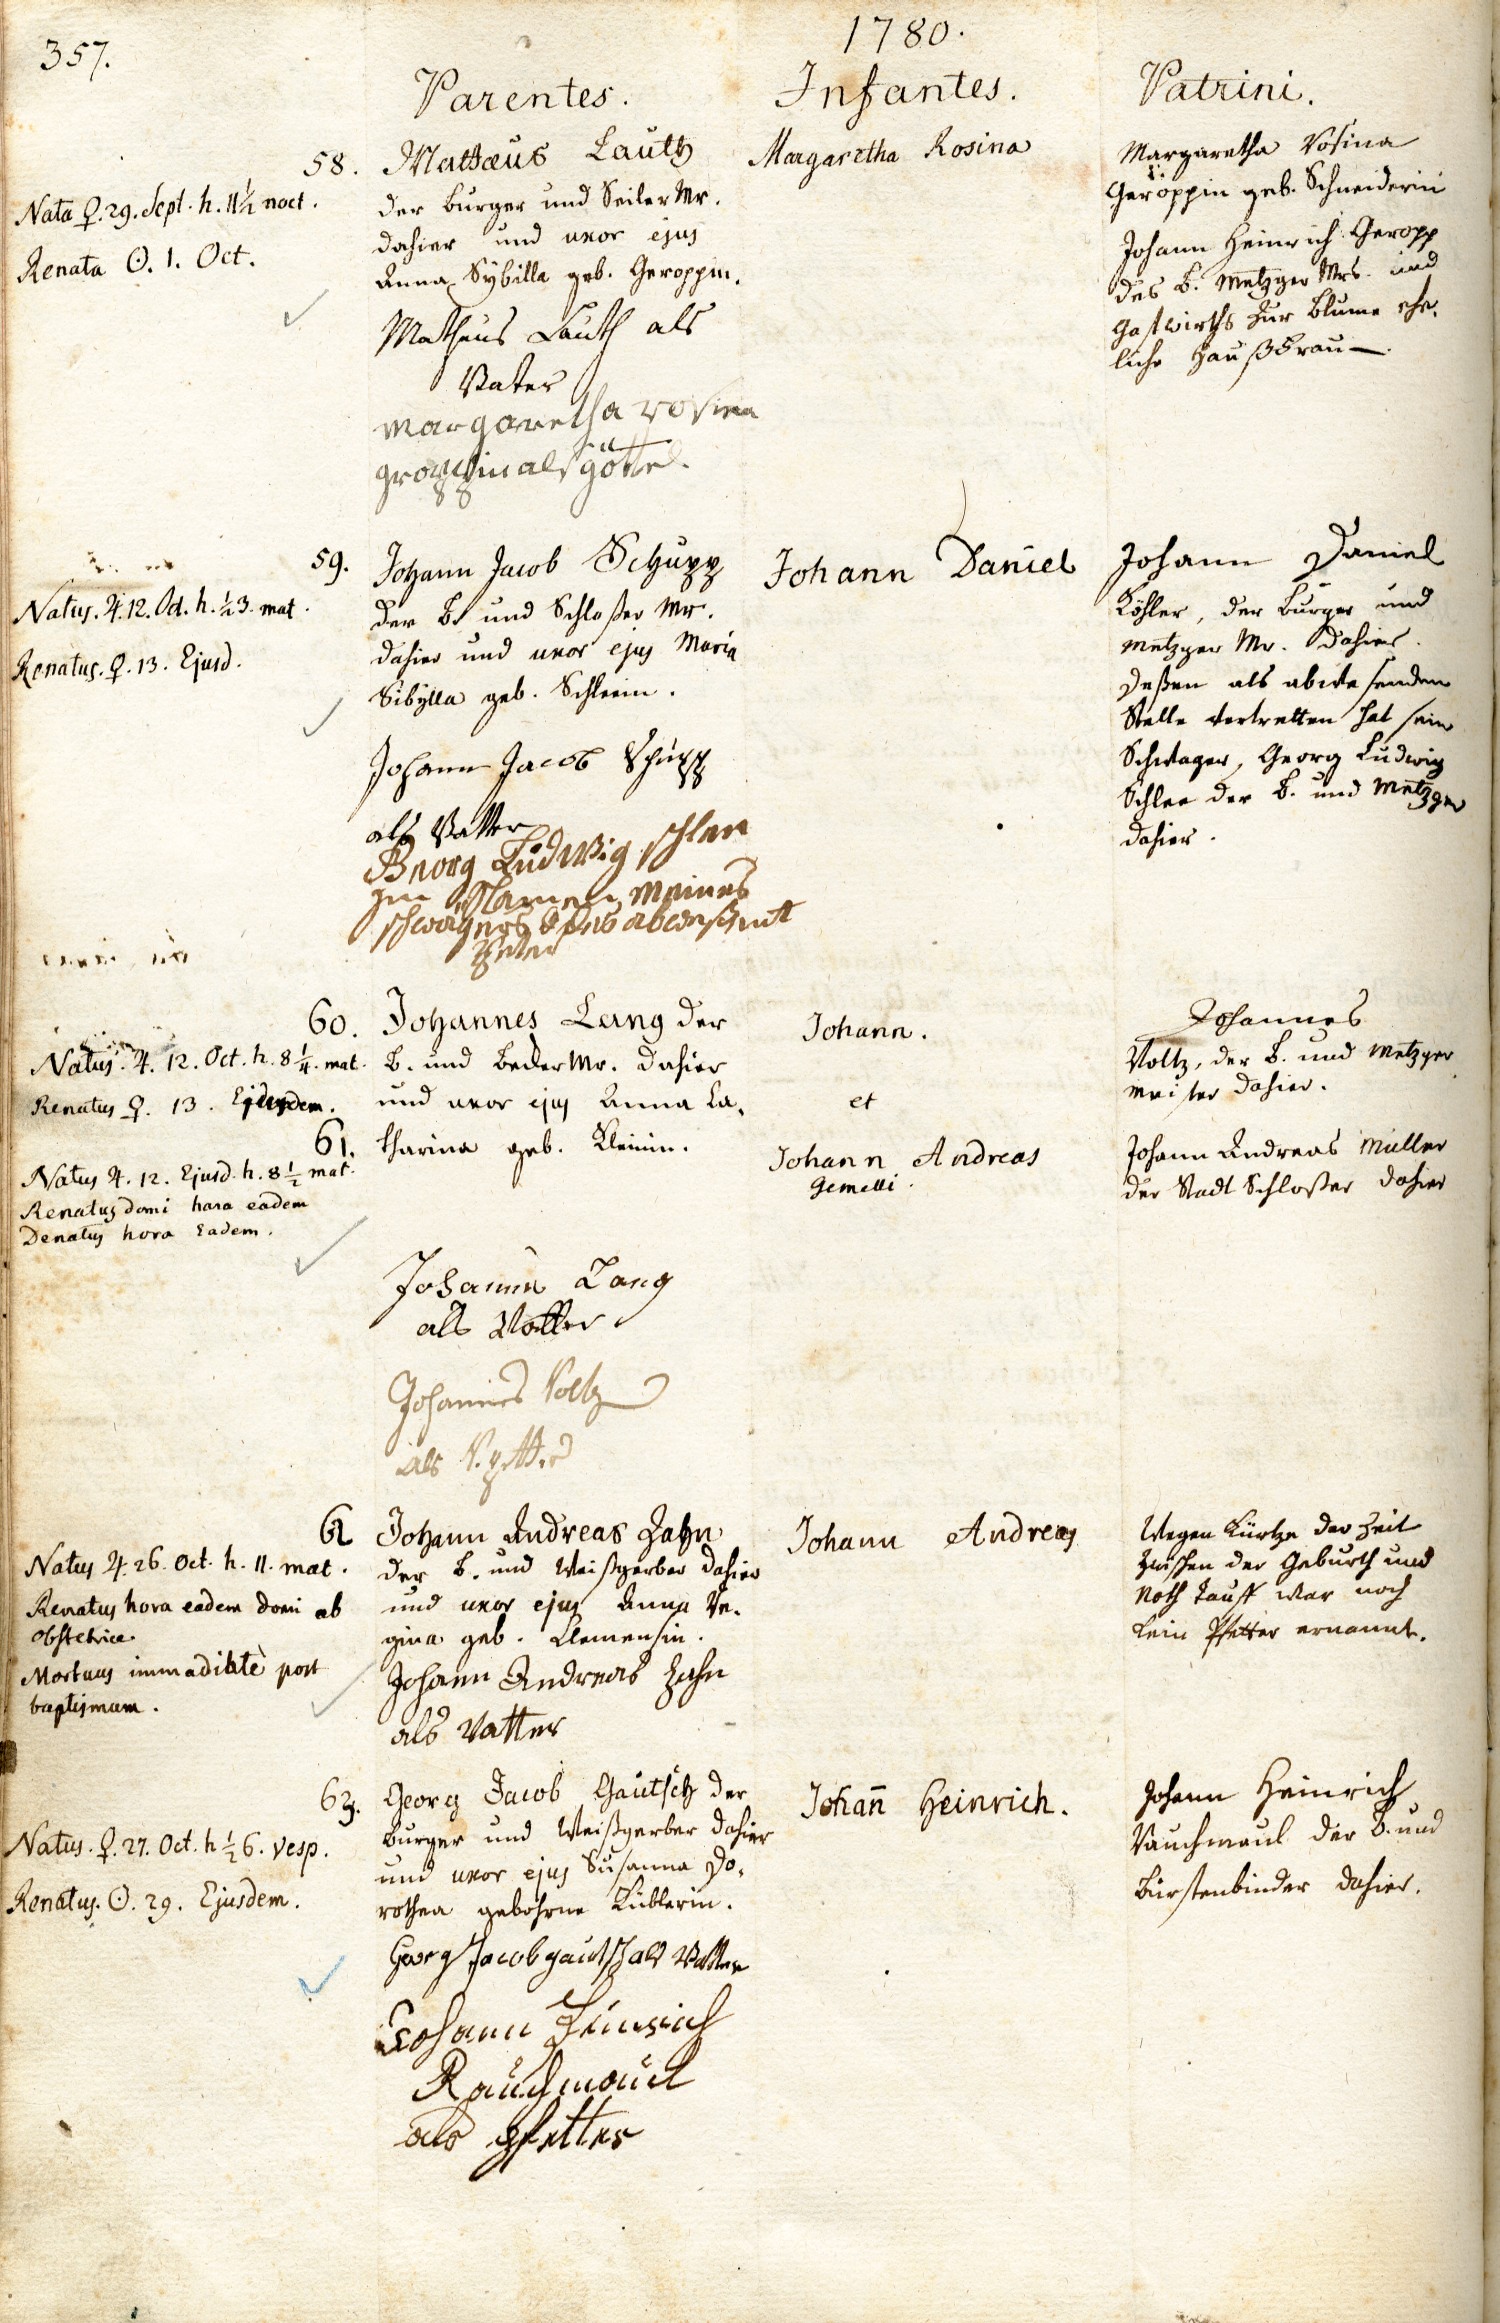 357.
1780.
Parentes.
Infantes.
Patrini.
58.
Nata ♀. 29. Sept. h. 11½ noct.
Renata ☉. 1. Oct.
Mattæus Lauth
der burger und Seiler Mr.
dahier und uxor ejus
Anna Sybilla geb. Geroppin.
Matheus Lauth als
Vater
Margaretha rosina
groppin als göttel.
Margaretha Rosina
Margaretha Rosina
Geröppin geb. Schneiderin
Johann Heinrich Geropp
des B. Metzger Mrs. und
Gastwirths zur Blume ehe,
liche Haußfrau —
59.
Natus. ♃. 12. Oct. h. ½ 3. mat.
Renatus. ♀. 13. Ejusd.
Johann Jacob Schupp
der B. und Schloßer Mr.
dahier und uxor ejus Maria
Sibylla geb. Schleein.
Johann Jacob Schupp
als Vatter
Georg Ludwig schlee
im Namen meines
schwagers des abweßent
Johann Daniel
Johann Daniel
Köhler, der burger und
Metzger Mr. dahier.
Deßen als abwesenden
Stelle vertretten hat sein
Schwager, Georg Ludwig
Schlee der B. und Metzger
dahier.
60.
Natus. ♃. 12. Oct. h. 8 ¼. mat.
Renatus ♀. 13. Ejusdem.
Johannes Lang der
B. und Beder Mr. dahier
und uxor ejus Anna Ca,
tharina geb. Kleinin.
Johann.
et
Johannes
Voltz, der B. und Metzger
meister dahier.
61.
Natus ♃. 12. Ejusd. h. 8 ½ mat.
Renatus domi hora eadem
Denatus hora Eadem.
Johann Andreas
Gemelli.
Johann Andreas Müller
der Stadt Schloßer dahier
Johann Lang
als Vatter
Johannes Voltz
als Pfetter
62
Natus ♃. 26. Oct. h. 11. mat.
Renatus hora eadem domi ab
obstetrice.
Mortuus immadiatè post
baptismum.
Johann Andreas Zahn
der B. und Weißgerber dahier
und uxor ejus Anna Re,
gina geb. Clemensin.
Johann Andreas Zahn
als Vatter
Johann Andreas
Wegen Kürtze der Zeit
zwischen der Geburth und
Noth Tauff war noch
kein Pfetter ernannt.
63.
Natus. ♀. 27. Oct. h ½ 6. vesp.
Renatus. ☉. 29. Ejusdem.
Georg Jacob Gautsch der
burger und Weißgerber dahier
und uxor ejus Susanna Do,
rothea gebohrne Küblerin.
Georg Jacob gautsch als Vatter
Johann Heinrich
Rauchmaul
als Pfetter
Johañ Heinrich.
Johann Heinrich
Rauchmaul der B. und
Bürstenbinder dahier.